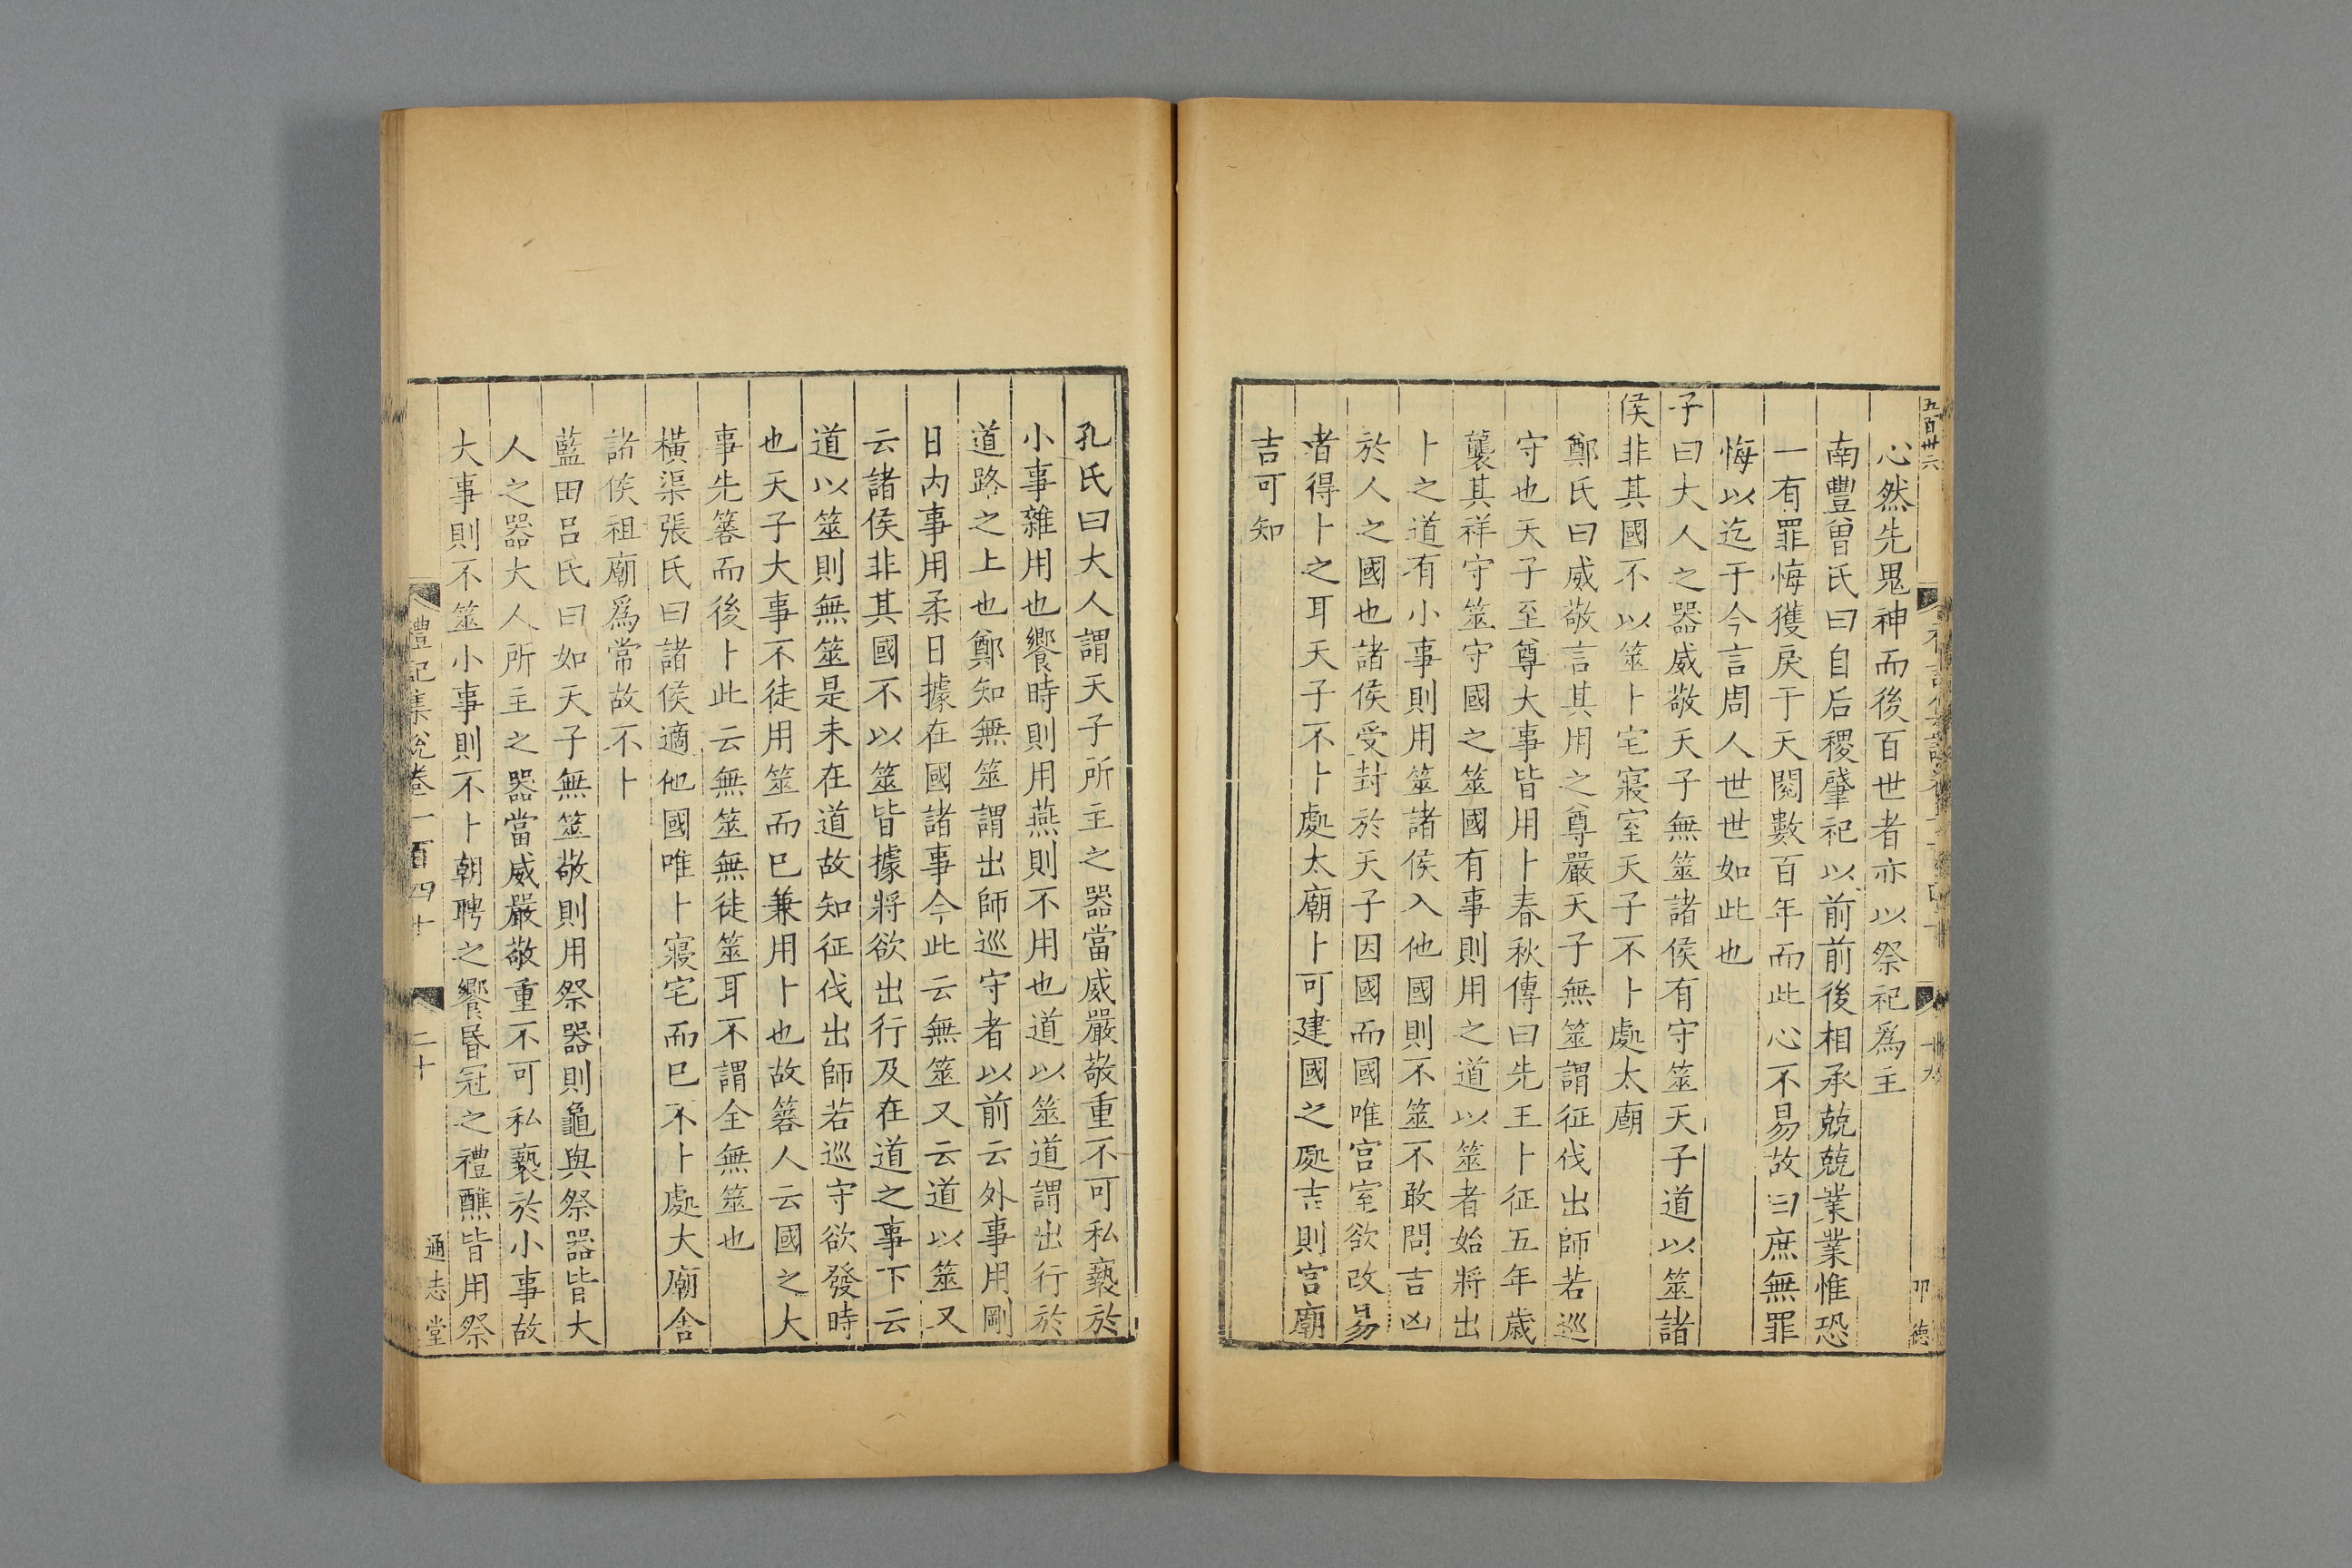 五百卅六
心然先鬼神而後百世者亦以祭祀爲主
南豐曾氏曰自后稷肇祀以前前後相承兢兢業業惟恐
一有罪悔獲戾于天閱數百年而此心不易故曰庶無罪
悔以迄于今言周人世世如此也
子曰大人之器威敬天子無筮諸侯有守筮天子道以筮諸
侯非其國不以筮卜宅寢室天子不卜處太廟
鄭氏曰威敬言其用之尊嚴天子無筮謂征伐出師若巡
守也天子至尊大事皆用卜春秋傳曰先王卜征五年歳
襲其祥守筮守國之筮國有事則用之道以筮者始將出
卜之道有小事則用筮諸侯入他國則不筮不敢問吉凶
於人之國也諸侯受封於天子因國而國唯宫室欲改易
者得卜之耳天子不卜處太廟卜可建國之處吉則宫廟
吉可知
孔氏曰大人謂天子所主之器當威嚴敬重不可私褻於
小事雜用也饗時則用燕則不用也道以筮道謂出行於
道路之上也鄭知無筮謂出師巡守者以前云外事用剛
日内事用柔日據在國諸事今此云無筮又云道以筮又
云諸侯非其國不以筮皆據將欲出行及在道之事下云
道以筮則無筮是未在道故知征伐出師若巡守欲發時
也天子大事不徒用筮而已兼用卜也故簭人云國之大
事先簭而後卜此云無筮無徒筮耳不謂全無筮也
橫渠張氏曰諸侯適他國唯卜寢宅而已不卜處大廟舍
諸侯祖廟爲常故不卜
藍田呂氏曰如天子無筮敬則用祭器則龜與祭器皆大
人之器大人所主之器當威嚴敬重不可私褻於小事故
大事則不筮小事則不卜朝聘之饗昏冠之禮醮皆用祭
禮記集說卷一百四十 二十 通志堂